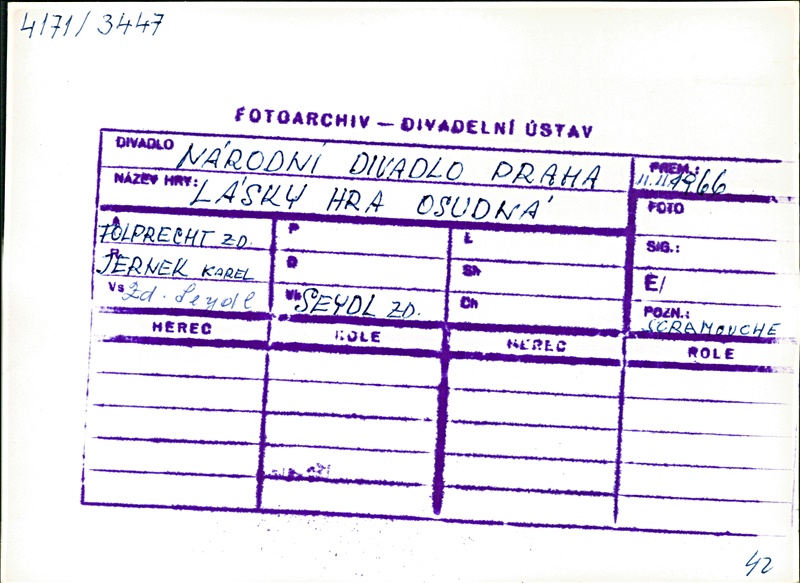 4171/3447
FOTOARCHIV — DIVADELNÍ ÚSTAV
DIVADLO NÁRODNÍ DIVADLO PRAHA
PREM.: 11.11.1966
NÁZEV HRY: LÁSKY HRA OSUDNÁ
FOTO
A FOLPRECHT ZD.
P
L
SIG.:
R JERNEK KAREL
D
Sh
E/
Vs Zd. Seydl
Vk SEYDL ZD.
Ch
POZN.: SCRAMOUCHE
HEREC
ROLE
HEREC
ROLE
42